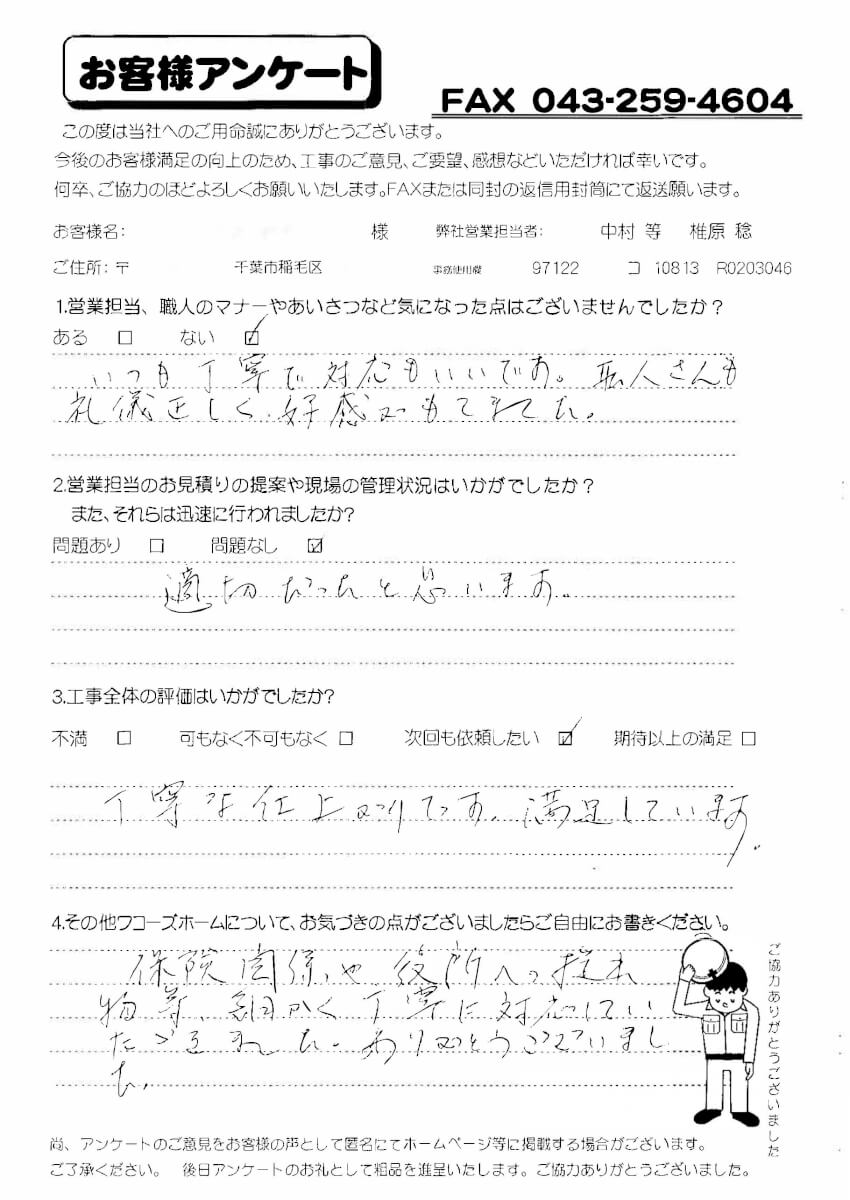 お客様アンケート
FAX 043-259-4604
この度は当社へのご用命誠にありがとうございます。
今後のお客様満足の向上のため、工事のご意見、ご要望、感想などいただければ幸いです。
何卒、ご協力のほどよろしくお願いいたします。FAXまたは同封の返信用封筒にて返送願います。
お客様名: 様 弊社営業担当者: 中村 等 椎原 稔
ご住所:〒 千葉市稲毛区 事務使用欄 97122 コ 10813 R0203046
1.営業担当、職人のマナーやあいさつなど気になった点はございませんでしたか?
ある □ ない ☑
いつも丁寧で対応もいいです。職人さんも
礼儀正しく、好感がもてました。
2.営業担当のお見積りの提案や現場の管理状況はいかがでしたか?
また、それらは迅速に行われましたか?
問題あり □ 問題なし ☑
適切だったと思います。
3.工事全体の評価はいかがでしたか?
不満 □ 可もなく不可もなく □ 次回も依頼したい ☑ 期待以上の満足 □
丁寧な仕上がりです。満足しています。
4.その他ワコーズホームについて、お気づきの点がございましたらご自由にお書きください。
保険関係や、役所への提出
物等、細かく丁寧に対応してい
ただきました。ありがとうございまし
た。
ご協力ありがとうございました
尚、アンケートのご意見をお客様の声として匿名にてホームページ等に掲載する場合がございます。
ご了承ください。 後日アンケートのお礼として粗品を進呈いたします。ご協力ありがとうございました。